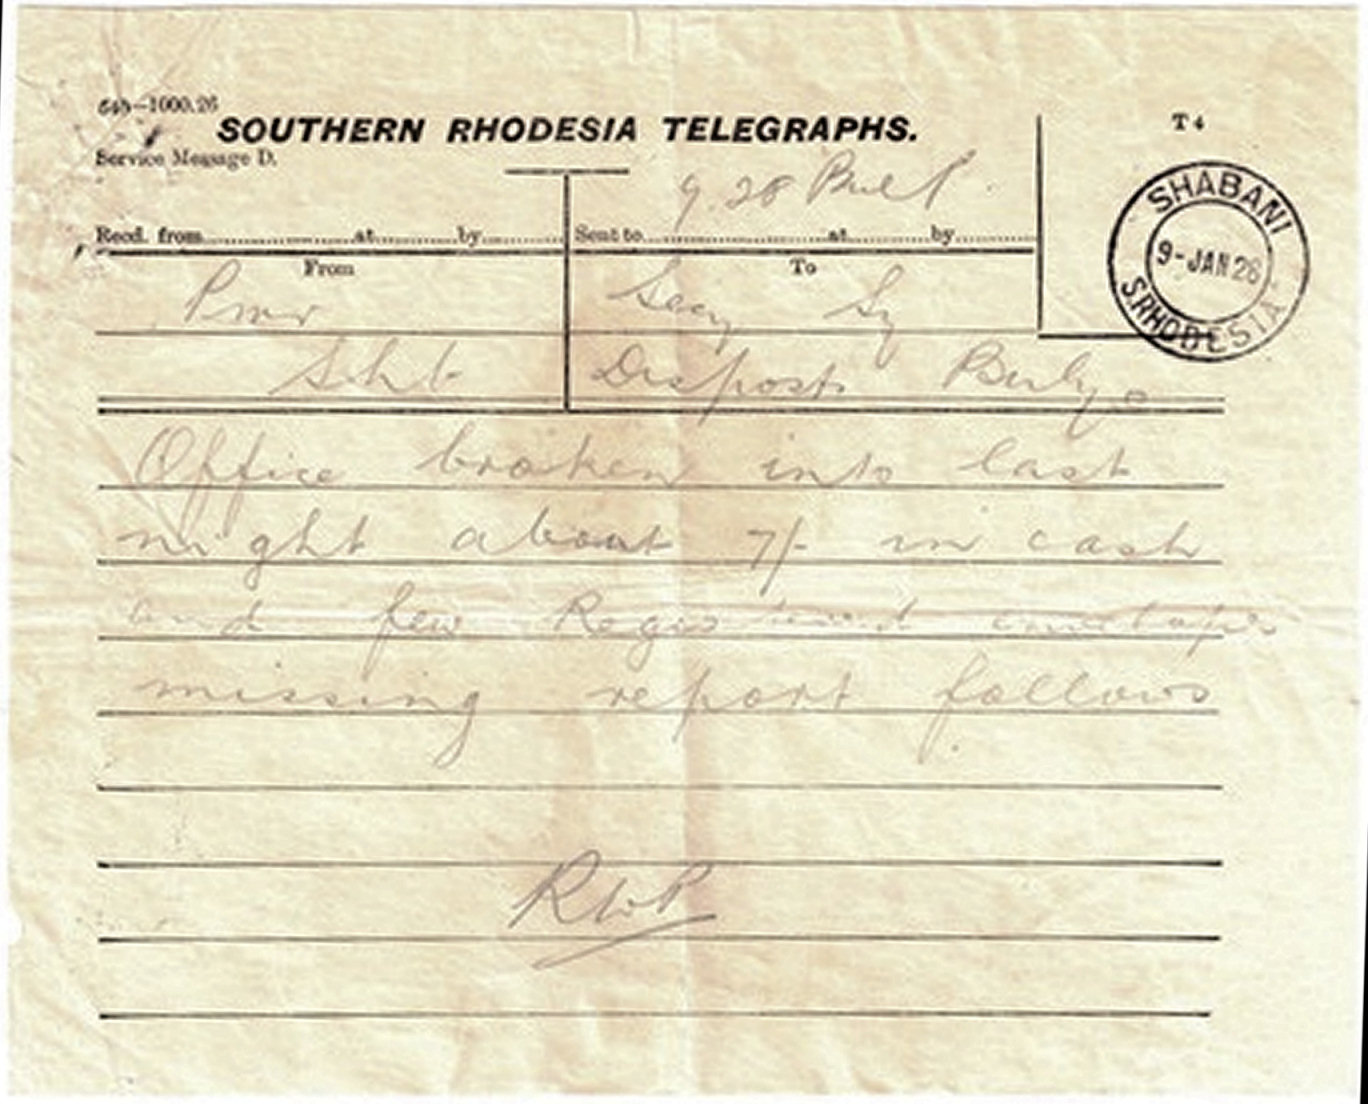 640—1000.26
SOUTHERN RHODESIA TELEGRAPHS.
T 4
Service Message D.
9.28
Recd. from at by Sent to at by
From To
Pmr Secy Sy
Shb Disposts Bulyo
SHABANI
9-JAN 26
S.RHODESIA
Office broken into last
night about 7/- in cash
and few Registered envelopes
missing report follows
RWP